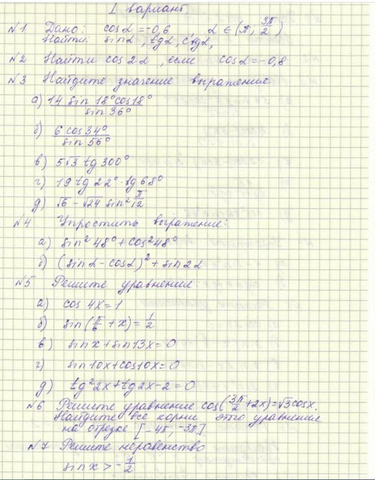 I вариант.
№1 Дано: cosα = -0,6 α ∈ (π; 3π/2)
Найти: sinα, tgα, ctgα.
№2 Найти cos2α, если cosα = -0,8
№3 Найдите значение выражения:
а) 14 sin 18° cos 18° / sin 36°
б) 6 cos 34° / sin 56°
в) 5√3 tg 300°
г) 19 tg 22° · tg 68°
д) √6 - √24 sin² π/12
№4 Упростить выражение:
а) sin² 48° + cos² 48°
б) (sinα - cosα)² + sin2α
№5 Решите уравнения
а) cos 4x = 1
б) sin(π/6 + x) = 1/2
в) sinx + sin13x = 0
г) sin10x + cos10x = 0
д) tg²2x + tg2x - 2 = 0
№6 Решите уравнение cos(3π/2 + 2x) = √3 cosx.
Найдите все корни этого уравнения
на отрезке [-4π; -3π]
№7 Решите неравенство
sinx > -1/2